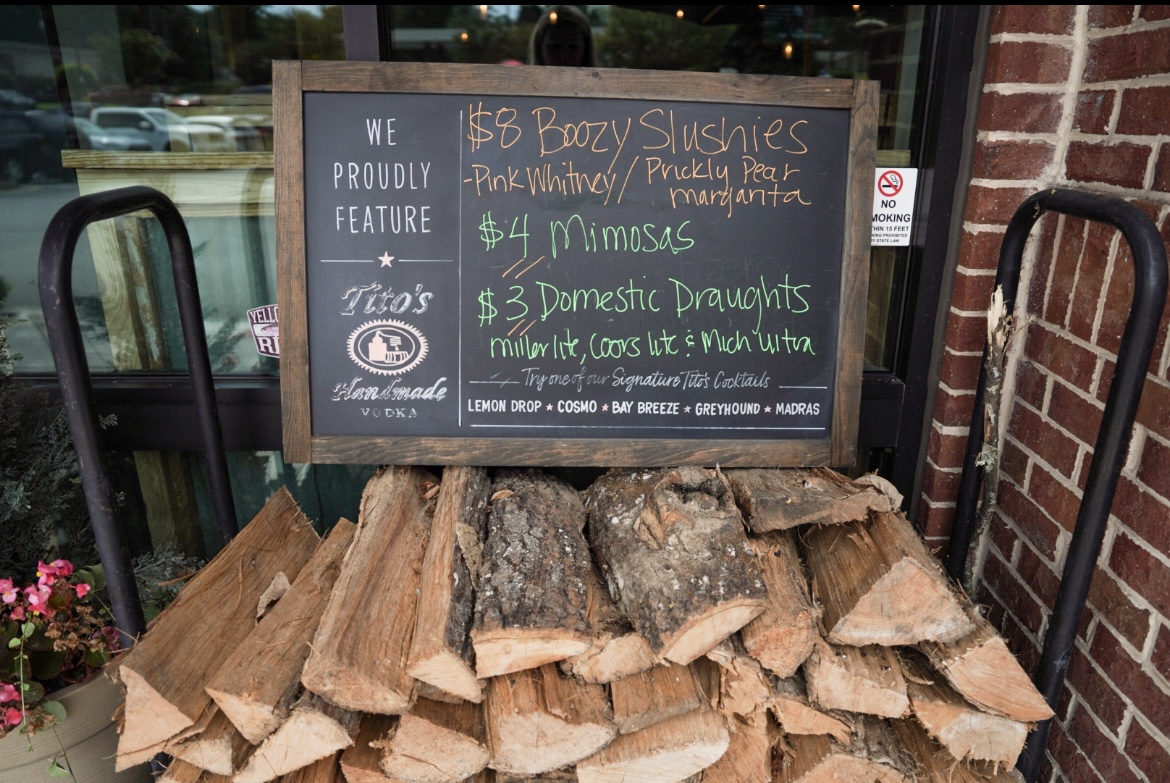 WE
PROUDLY
FEATURE
Tito's
Handmade
VODKA
$8 Boozy Slushies
-Pink Whitney/ Prickly Pear
margarita
$4 Mimosas
$3 Domestic Draughts
miller lite, Coors lite & Mich ultra
Try one of our Signature Tito's Cocktails
LEMON DROP ★ COSMO ★ BAY BREEZE ★ GREYHOUND ★ MADRAS
NO
MOKING
THIN 15 FEET
BY STATE LAW
YELLO
RI